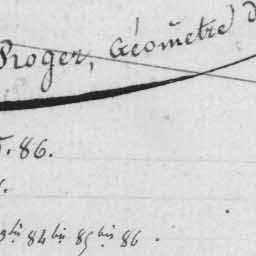 Roger, Géomètre d
. 86.
84 bis 85 bis 86 .